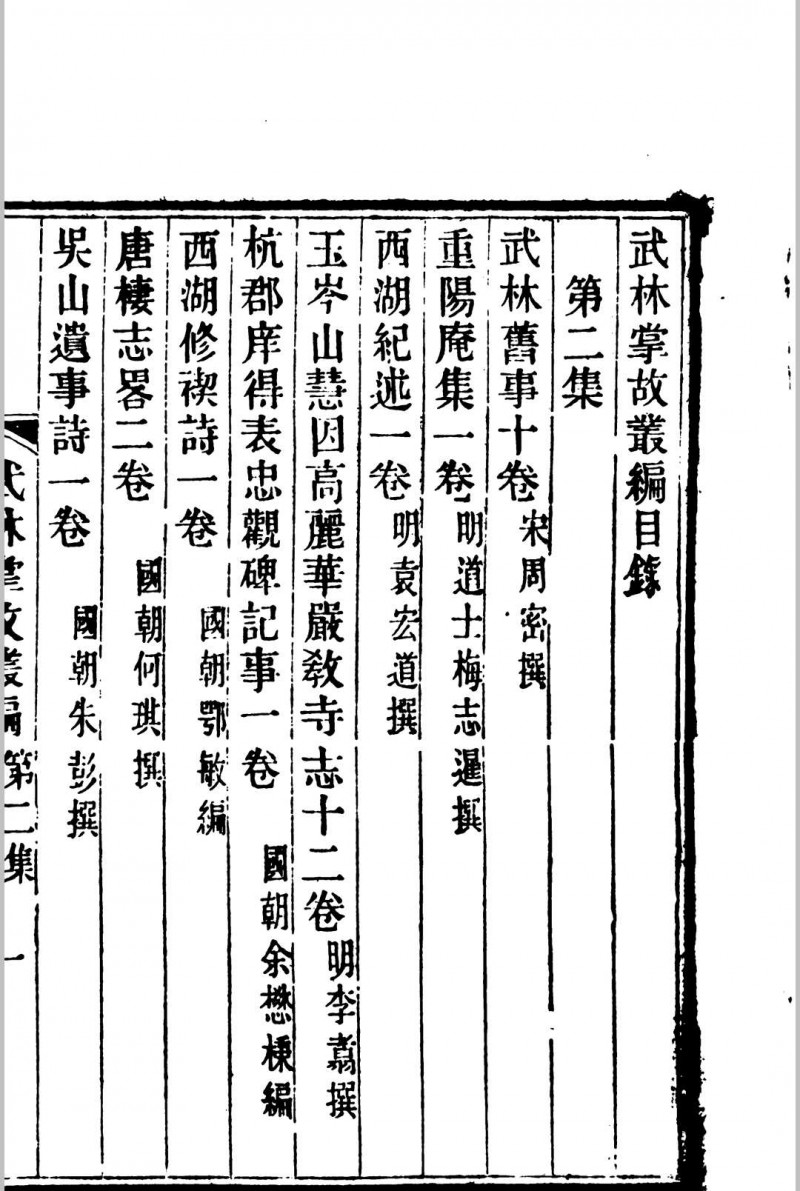 武林掌故叢編目錄
第二集
武林舊事十卷 宋周密撰
重陽庵集一卷 明道士梅志暹撰
西湖紀述一卷 明袁宏道撰
玉岑山慧因高麗華嚴敎寺志十二卷 明李翥撰
杭郡庠得表忠觀碑記事一卷 國朝余懋棅編
西湖修禊詩一卷 國朝鄂敏編
唐棲志畧二卷 國朝何琪撰
吳山遺事詩一卷 國朝朱彭撰
武林掌故叢編第二集 一